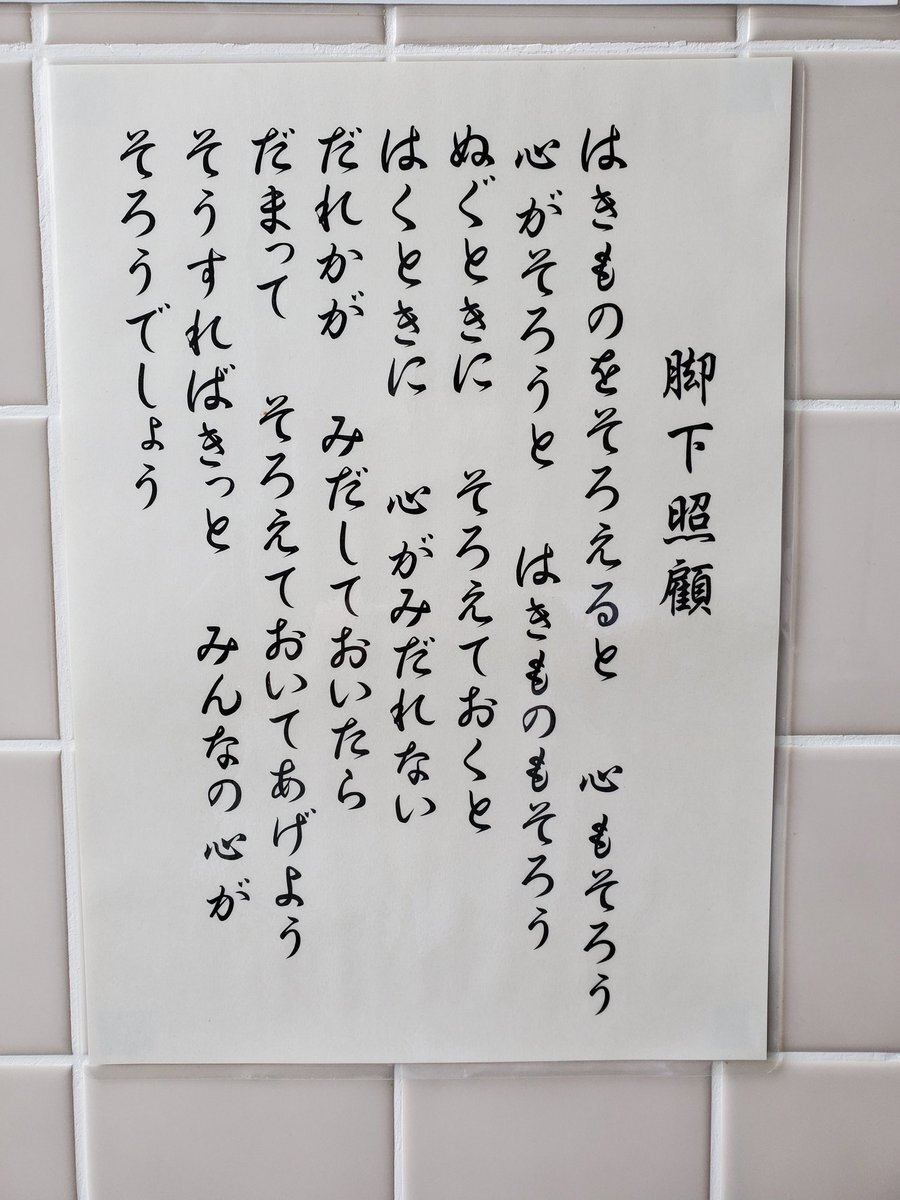 脚下照顧
はきものをそろえると　心もそろう
心がそろうと　はきものもそろう
ぬぐときに　そろえておくと
はくときに　心がみだれない
だれかが　みだしておいたら
だまって　そろえておいてあげよう
そうすればきっと　みんなの心が
そろうでしょう